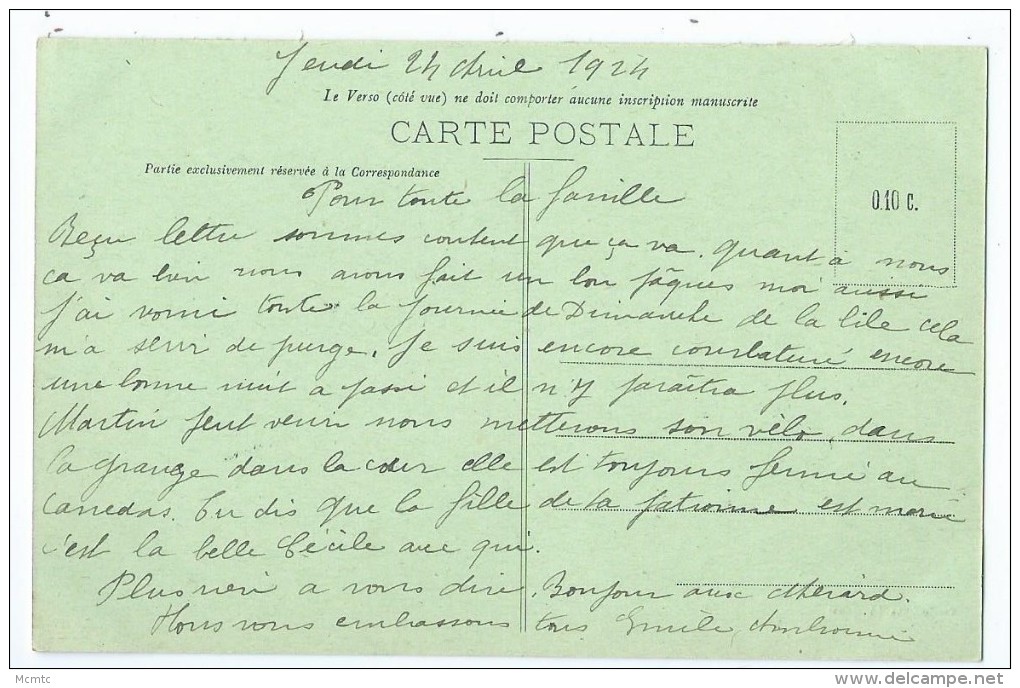 Jeudi 24 Avril 1924
Le Verso (côté vue) ne doit comporter aucune inscription manuscrite
CARTE POSTALE
Partie exclusivement réservée à la Correspondance
0.10 c.
Pour toute la famille
Reçu lettre sommes content que ça va. quant à nous
ça va bien nous avons fait un bon pâques moi aussi
J'ai vomi toute la journée de Dimanche de la bile cela
m'a servi de purge. Je suis encore courbaturé encore
une bonne nuit a passé et il n'y paraîtra plus.
Martin peut venir nous metterons son vélo dans
la grange dans la cour elle est toujours fermé au
canedas. Tu dis que la fille de ta patronne est marié
c'est la belle Cécile avec qui.
Plus rien a vous dire. Bonjour aux Mérard.
Nous vous embrassons tous Emile Ambroisine
Mcmtc
delcampe.net